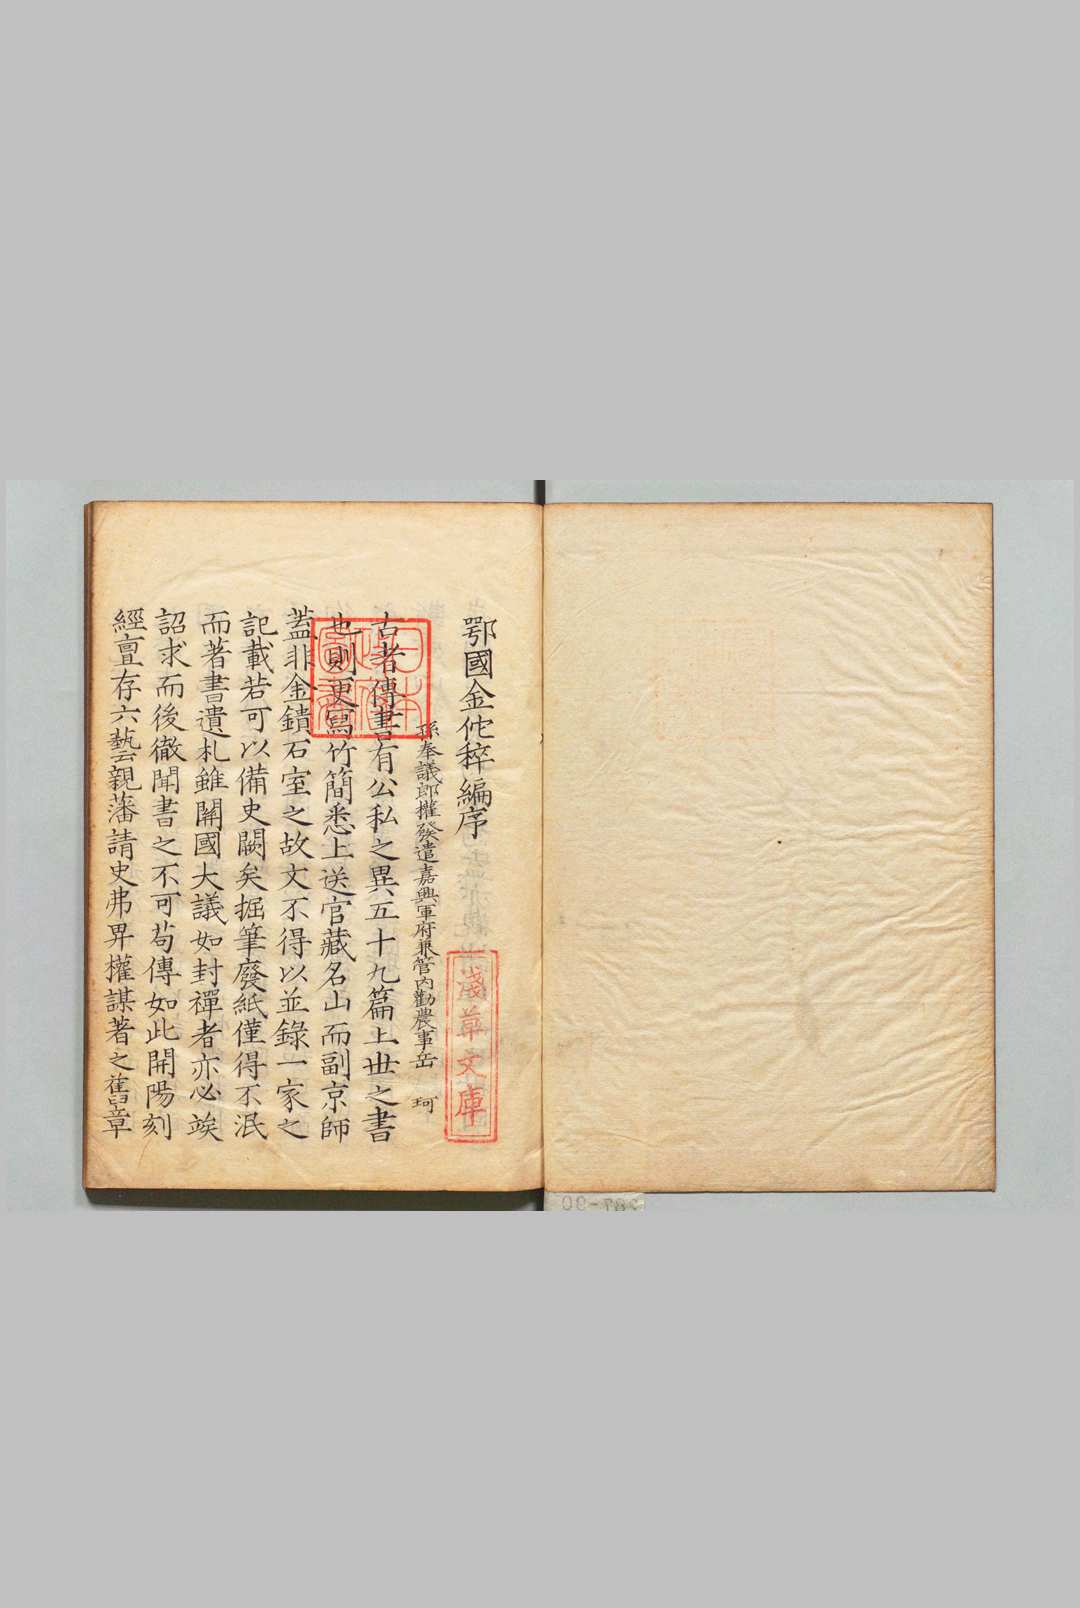 鄂國金佗稡編序
孫奉議郎權發遣嘉興軍府兼管内勸農事岳 珂
古者傳書有公私之異五十九篇上丗之書
也則更寫竹簡悉上送官藏名山而副京師
蓋非金鐀石室之故文不得以並錄一家之
記載若可以備史闕矣掘筆廢紙僅得不泯
而著書遺札雖關國大議如封禪者亦必竢
詔求而後徹聞書之不可苟傳如此開陽刻
經亶存六藝親藩請史弗畀權謀著之舊章
日本政府圖書
淺草文庫
287-90